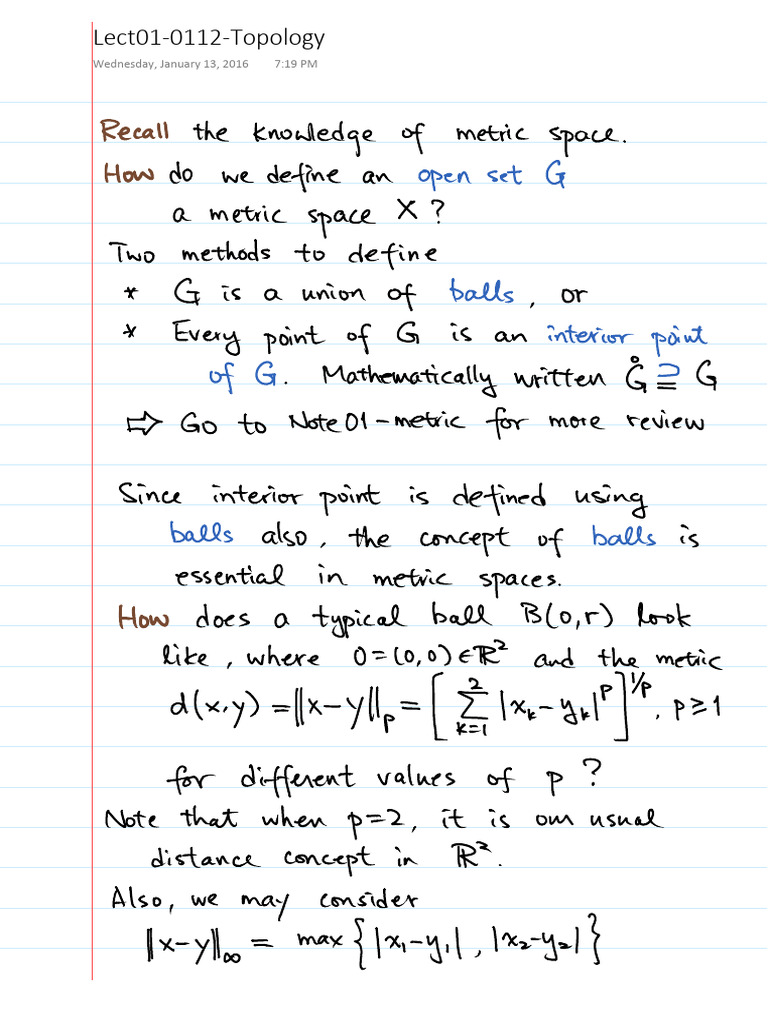 Lect01-0112-Topology
Wednesday, January 13, 2016 7:19 PM
Recall the knowledge of metric space.
How do we define an open set G
a metric space X?
Two methods to define
* G is a union of balls, or
* Every point of G is an interior point
of G. Mathematically written G̊ ⊇ G
⇨ Go to Note01-metric for more review
Since interior point is defined using
balls also, the concept of balls is
essential in metric spaces.
How does a typical ball B(0,r) look
like, where 0=(0,0)∈ℝ² and the metric
d(x,y) = ‖x-y‖ₚ = [∑_{k=1}^{2} |xₖ-yₖ|ᵖ]^{1/p}, p≥1
for different values of p?
Note that when p=2, it is our usual
distance concept in ℝ².
Also, we may consider
‖x-y‖∞ = max{|x₁-y₁|, |x₂-y₂|}